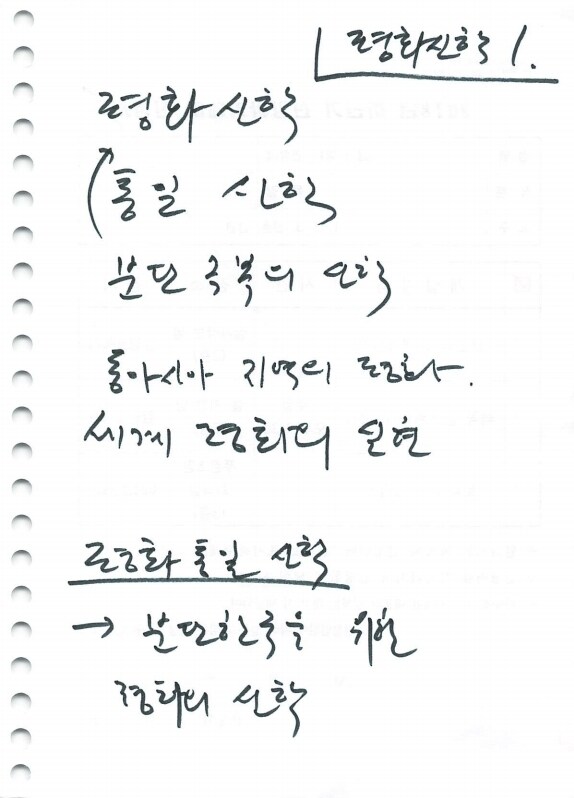 평화신학 1.
평화 신학
통일 신학
분단 극복의 신학
동아시아 지역의 평화.
세계 평화의 실현
평화 통일 신학
→ 분단한국을 위한
평화의 신학